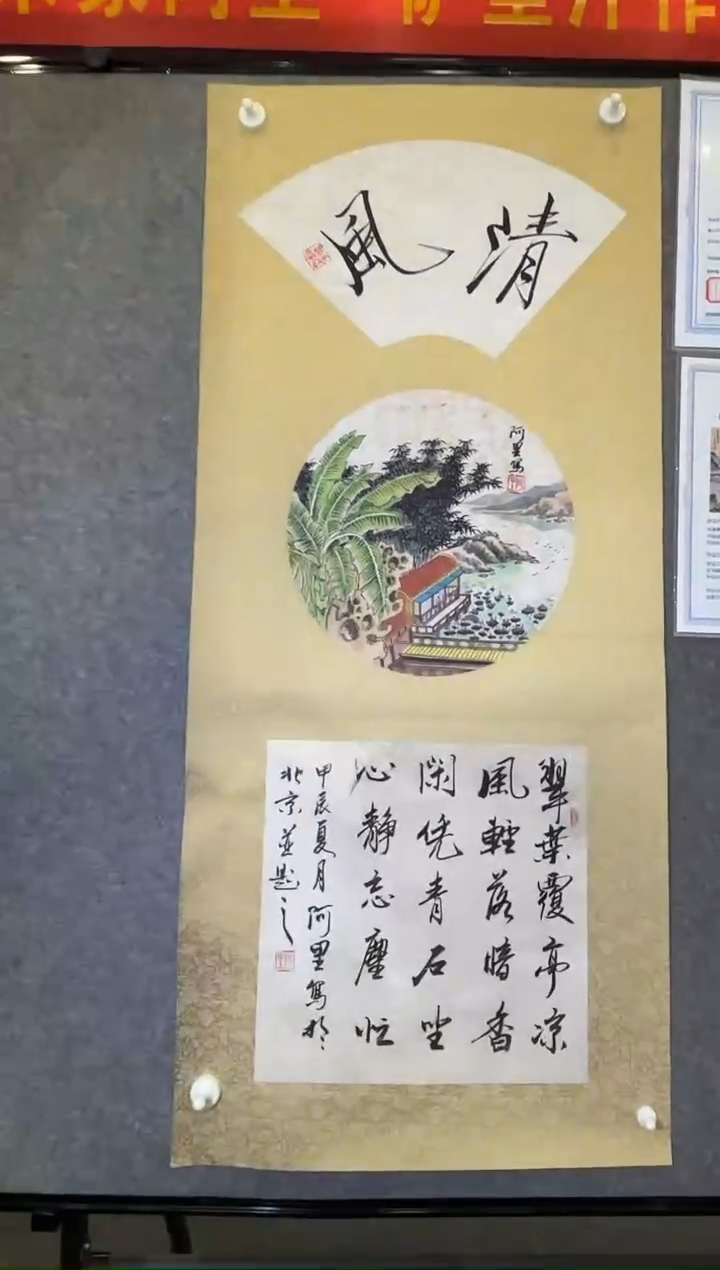 清風
阿里寫
翠葉覆亭凉
風輕落暗香
閑凭青石坐
心靜忘塵忙
甲辰夏月阿里寫於
北京並題之